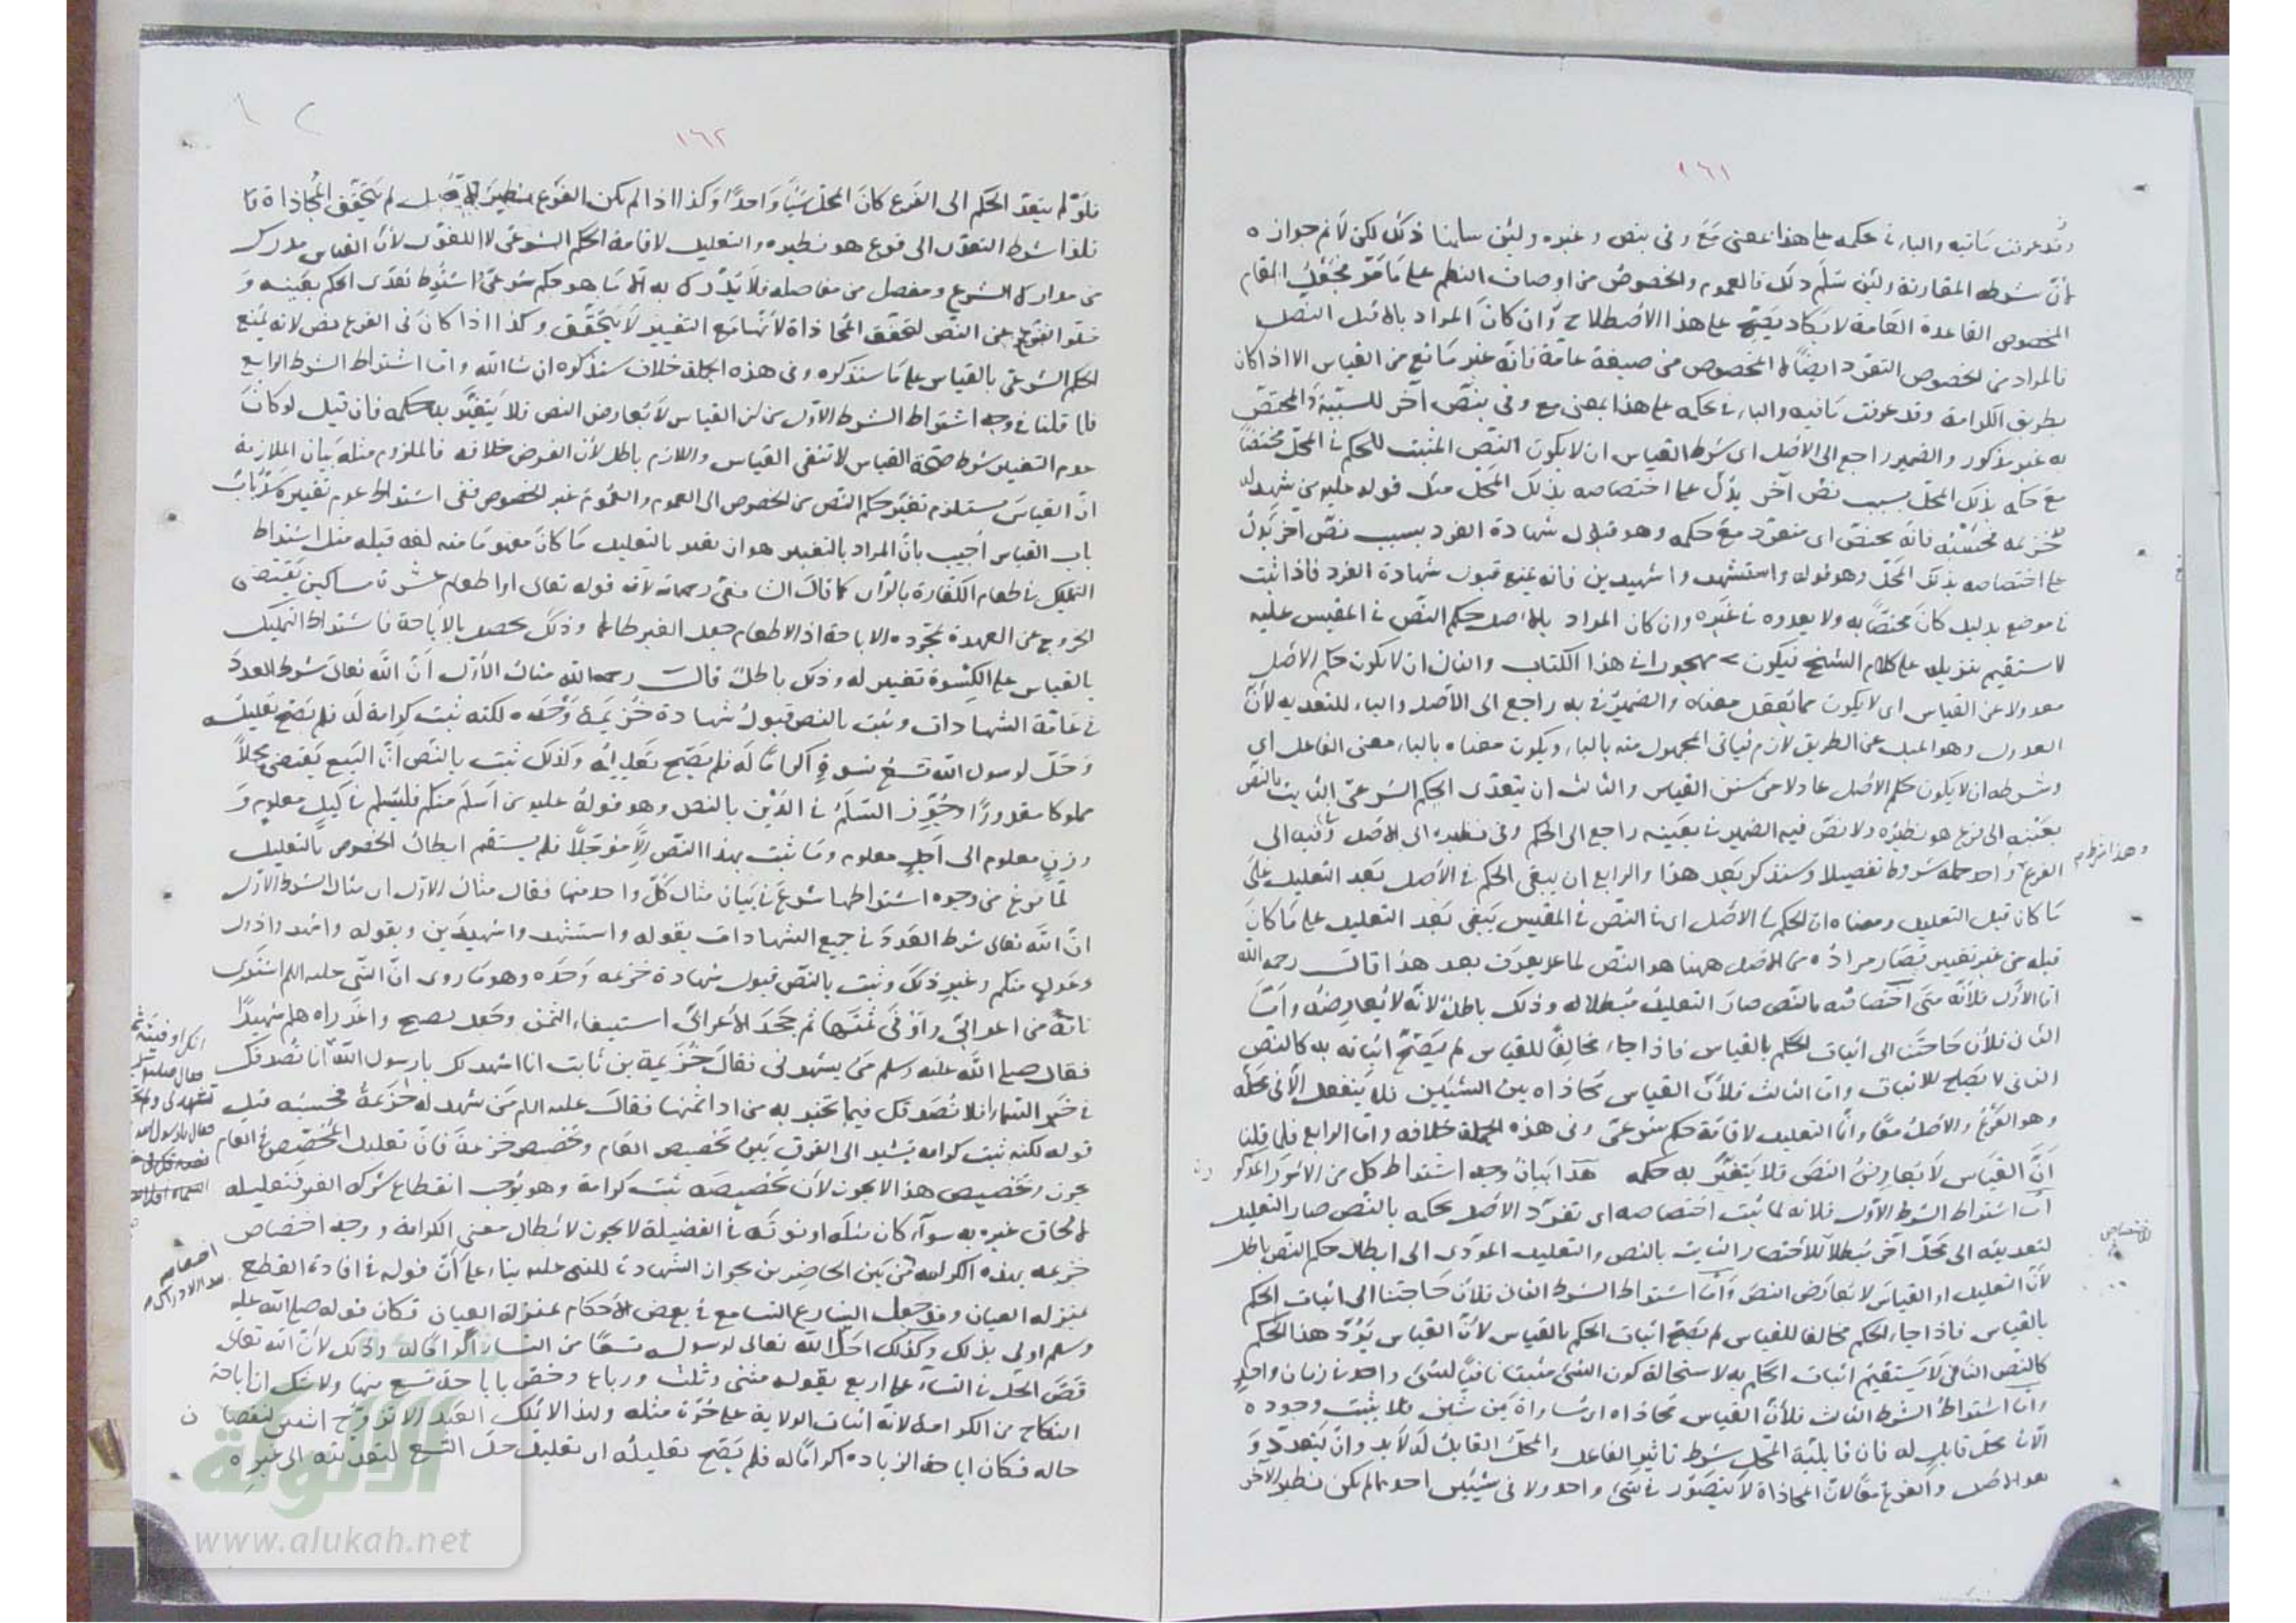 ١٦١
وقد عرفت ثانيه والباء في حكمه على هذا بمعنى مع وفي بنص وغيره ولئن سلمنا ذلك لكن لا نم جوازه
لان شرطه المقارنة ولئن سلم ذلك فالعموم والخصوص من اوصاف النظم على ما مر فجعل المقام
المخصوص القاعدة العامة لا يكاد يصح على هذا الاصطلاح وان كان المراد بالاصل النص
فالمراد من الخصوص التفرد ايضا لا الخصوص من صيغة عامة فانه غير مانع من القياس الا اذا كان
بطريق الكرامة وقد عرفت ثانيه والباء في بحكمه على هذا بمعنى مع وفي بنص آخر للسببية والمختص
به غير مذكور والضمير راجع الى الاصل اى شرط القياس ان لا يكون النص المثبت للحكم في المحل مختصا
مع حكمه بذلك المحل بسبب نص آخر يدل على اختصاصه بذلك المحل مثل قوله عليه من شهد له
خزيمة فحسبه فانه يختص اى متفرد مع حكمه وهو قبول شهادة الفرد بسبب نص آخر يدل
على اختصاصه بذلك المحل وهو قوله واستشهدوا شهيدين فانه يمنع قبول شهادة الفرد فاذا ثبت
في موضع بدليل كان مختصا به ولا يعدوه في غيره وان كان المراد بالاصل حكم النص في المقيس عليه
لا يستقيم تنزيله على كلام الشيخ فيكون مهجورا في هذا الكتاب والثاني ان لا يكون حكم الاصل
معدولا عن القياس اى لا يكون مما يعقل معناه والضمير في به راجع الى الاصل والباء للتعدية لان
العدول وهو الميل عن الطريق لازم فياتي المجهول منه بالباء ويكون معناه بالباء معنى الفاعل اى
وشرطه ان لا يكون حكم الاصل عادلا عن سنن القياس والثالث ان يتعدى الحكم الشرعي الثابت بالنص
بعينه الى فرع هو نظيره ولا نص فيه الضمير في بعينه راجع الى الحكم وفي نظيره الى الاصل وفيه الى
الفرع واحد جملة شروط تفصيلا وسنذكر بعد هذا والرابع ان يبقى الحكم في الاصل بعد التعليل على
ما كان قبل التعليل ومعناه ان الحكم في الاصل اى في النص في المقيس يبقى بعد التعليل على ما كان
قبله من غير تغيير فصار مراده من الاصل ههنا هو النص لما يعرف بعد هذا قال رحمه الله
اما الاول فلانه متى اختصاصه بالنص صار التعليل مبطلا له وذلك باطل لانه لا يعارضه واما
الثاني فلان حاجتنا الى اثبات الحكم بالقياس فاذا جاء مخالفا للقياس لم يصح اثباته به كالنص
النافي لا يصلح للاثبات واما الثالث فلان القياس محاذاه بين الشيئين فلا ينفعل الا في محله
وهو الفرع والاصل معا وانما التعليل لاقامة حكم شرعي وفي هذه الجملة خلافه واما الرابع فلما قلنا
ان القياس لا يعارض النص فلا يتغير به حكمه هذا بيان وجه اشتراط كل من الامور المذكو
اما اشتراط الشرط الاول فلانه لما ثبت اختصاصه اى تفرد الاصل بحكمه بالنص صار التعليل
لتعديته الى محل آخر مبطلا للاختصاص الثابت بالنص والتعليل المؤدي الى ابطال حكم النص باطل
لان التعليل او القياس لا يعارض النص واما اشتراط الشرط الثاني فلان حاجتنا الى اثبات الحكم
بالقياس فاذا جاء الحكم مخالفا للقياس لم يصح اثبات الحكم بالقياس لان القياس يرد هذا الحكم
كالنص النافي لا يستقيم اثبات الحكم به لاستحالة كون الشئ مثبتا نافيا لشئ واحد في زمان واحد
واما اشتراط الشرط الثالث فلان القياس محاذاه اى مساواة بين شيئين فلا يثبت وجوده
الا في محل قابل له فان قابلية المحل شرط تاثير الفاعل والمحل القابل له لا بد وان يتعدد و
هو الاصل والفرع معا لان المحاذاة لا يتصور في شئ واحد ولا في شيئين احدهما لم يكن نظير الآخر
وهذا شرط
الاختصاص
١٦٢
فلو لم يتعد الحكم الى الفرع كان المحل شيئا واحدا وكذا اذا لم يكن الفرع نظير الاصل لم يتحقق المحاذاة فا
فلذا شرط التعدى الى فرع هو نظيره والتعليل لاقامة الحكم الشرعي لا اللغوى لان القياس مدرك
من مدارك الشرع ومفصل من مفاصله فلا يدرك به الا ما هو حكم شرعي واشترط تعدى الحكم بعينه و
خلو الفرع عن النص لتحقق المحاذاة لانها مع التغيير لا يتحقق وكذا اذا كان في الفرع نص لانه يمنع
الحكم الشرعي بالقياس على ما سنذكره وفي هذه الجملة خلاف سنذكره ان شا الله واما اشتراط الشرط الرابع
فلما قلنا في وجه اشتراط الشرط الاول من ان القياس لا يعارض النص فلا يتغير به حكمه فان قيل لو كان
عدم التغيير شرط صحة القياس لانتفى القياس واللازم باطل لان الفرض خلافه فالملزوم مثله بيان الملازمة
ان القياس مستلزم تغير حكم النص من الخصوص الى العموم والعموم غير الخصوص ففي اشتراط عدم تغييره سد باب
باب القياس اجيب بان المراد بالتغيير هو ان يغير بالتعليل ما كان مفهوما منه لغة قبله مثل اشتراط
التمليك في طعام الكفارة بالراى كما قال الشافعي رحمه الله لان قوله تعالى او اطعام عشرة مساكين يقتضى
الخروج عن العهدة بمجرد الاباحة اذ الاطعام جعل الغير طاعما وذلك يحصل بالاباحة فاشتراط التمليك
بالقياس على الكسوة تغيير له وذلك باطل قال رحمه الله مثال الاول ان الله تعالى شرط العدد
في عامة الشهادات وثبت بالنص قبول شهادة خزيمة وحده لكنه ثبت كرامة له فلم يصح تعليله
وحل لرسول الله تسع نسوة اكراما له فلم يصح تعليله وكذلك ثبت بالنص ان البيع يقتضى محلا
مملوكا مقدورا وجوز السلم في الدين بالنص وهو قوله عليه من اسلم منكم فليسلم في كيل معلوم و
وزن معلوم الى اجل معلوم وما ثبت بهذا النص الا مؤجلا فلم يستقم ابطال الخصوص بالتعليل
لما فرغ من وجوه اشتراطها شرع في بيان مثال كل واحد منها فقال مثال الاول اى مثال الشرط الاول
ان الله تعالى شرط العدد في جميع الشهادات بقوله واستشهدوا شهيدين وبقوله واشهدوا ذوى
عدل منكم وغير ذلك وثبت بالنص قبول شهادة خزيمة وحده وهو ما روى ان النبي عليه السلام اشترى
ناقة من اعرابي واوفى ثمنها ثم جحد الاعرابي استيفاء الثمن وجعل يصيح واغدراه هلم شهيدا
فقال صلى الله عليه وسلم من يشهد لى فقال خزيمة بن ثابت انا اشهد لك يا رسول الله انا نصدقك
في خبر السماء افلا نصدقك فيما تخبر به من اداء ثمنها فقال عليه السلام من شهد له خزيمة فحسبه قيل
قوله لكنه ثبت كرامة يشير الى الفرق بين تخصيص العام وتخصيص خزيمة فان تعليل المخصص في العام
يجوز وتخصيص هذا لا يجوز لان تخصيصه ثبت كرامة وهو يوجب انقطاع شركة الغير فتعليله
لالحاق غيره به سواء كان مثله او فوقه في الفضيلة لا يجوز لابطال معنى الكرامة ووجه اختصاص
خزيمة بهذه الكرامة من بين الحاضرين بجواز الشهادة للنبي عليه بناء على ان قوله في افادة القطع
بمنزلة العيان وقد جعل الشارع التسامع في بعض الاحكام بمنزلة العيان فكان قوله صلى الله عليه
وسلم اولى بذلك وكذلك احل الله تعالى لرسوله تسعا من النساء اكراما له وذلك لان الله تعالى
قصر الحل في النساء على اربع بقوله مثنى وثلث ورباع وخص باباحة تسع منها ولا شك ان اباحة
النكاح من الكرامة لانه اثبات الولاية على حرة مثله ولهذا لا يملك العبد الا تزوج اثنتين لنقصان
حاله فكان اباحة الزيادة اكراما له فلم يصح تعليله اى تعليل حل التسع لتعديته الى غيره
شبكة
الألوكة
www.alukah.net